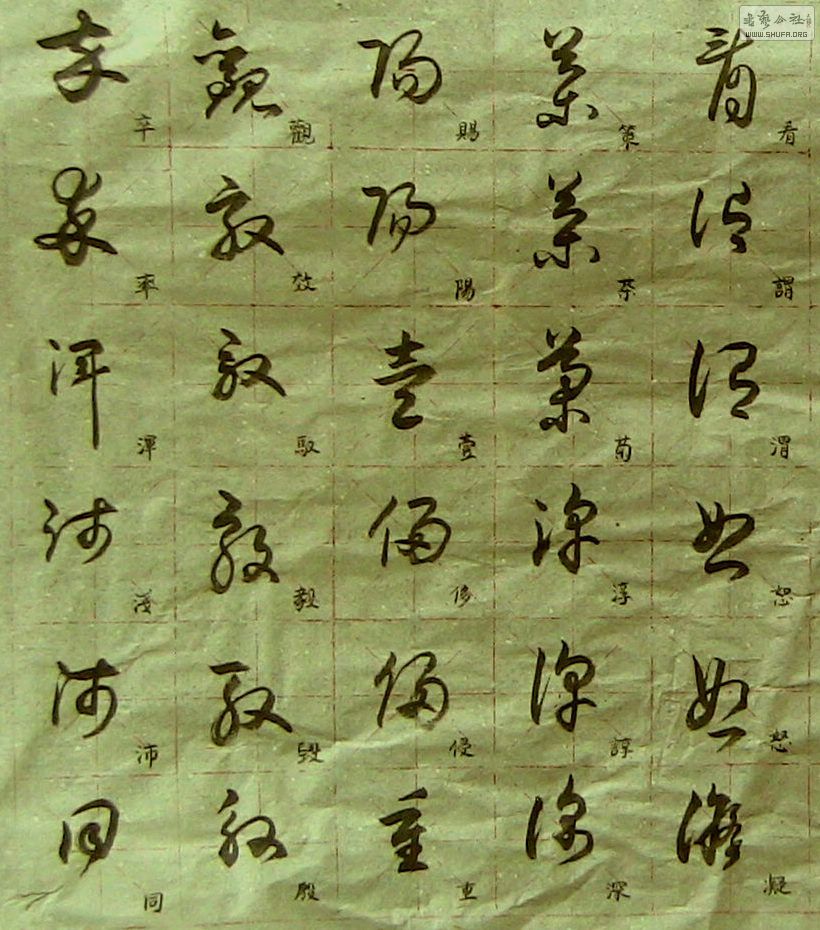 書藝公社
WWW.SHUFA.ORG
看謂渭恕怒凝
策茶菊淳諄深
賜陽壹修侵重
觀效馭毅毀殷
辛率渾淺沛同